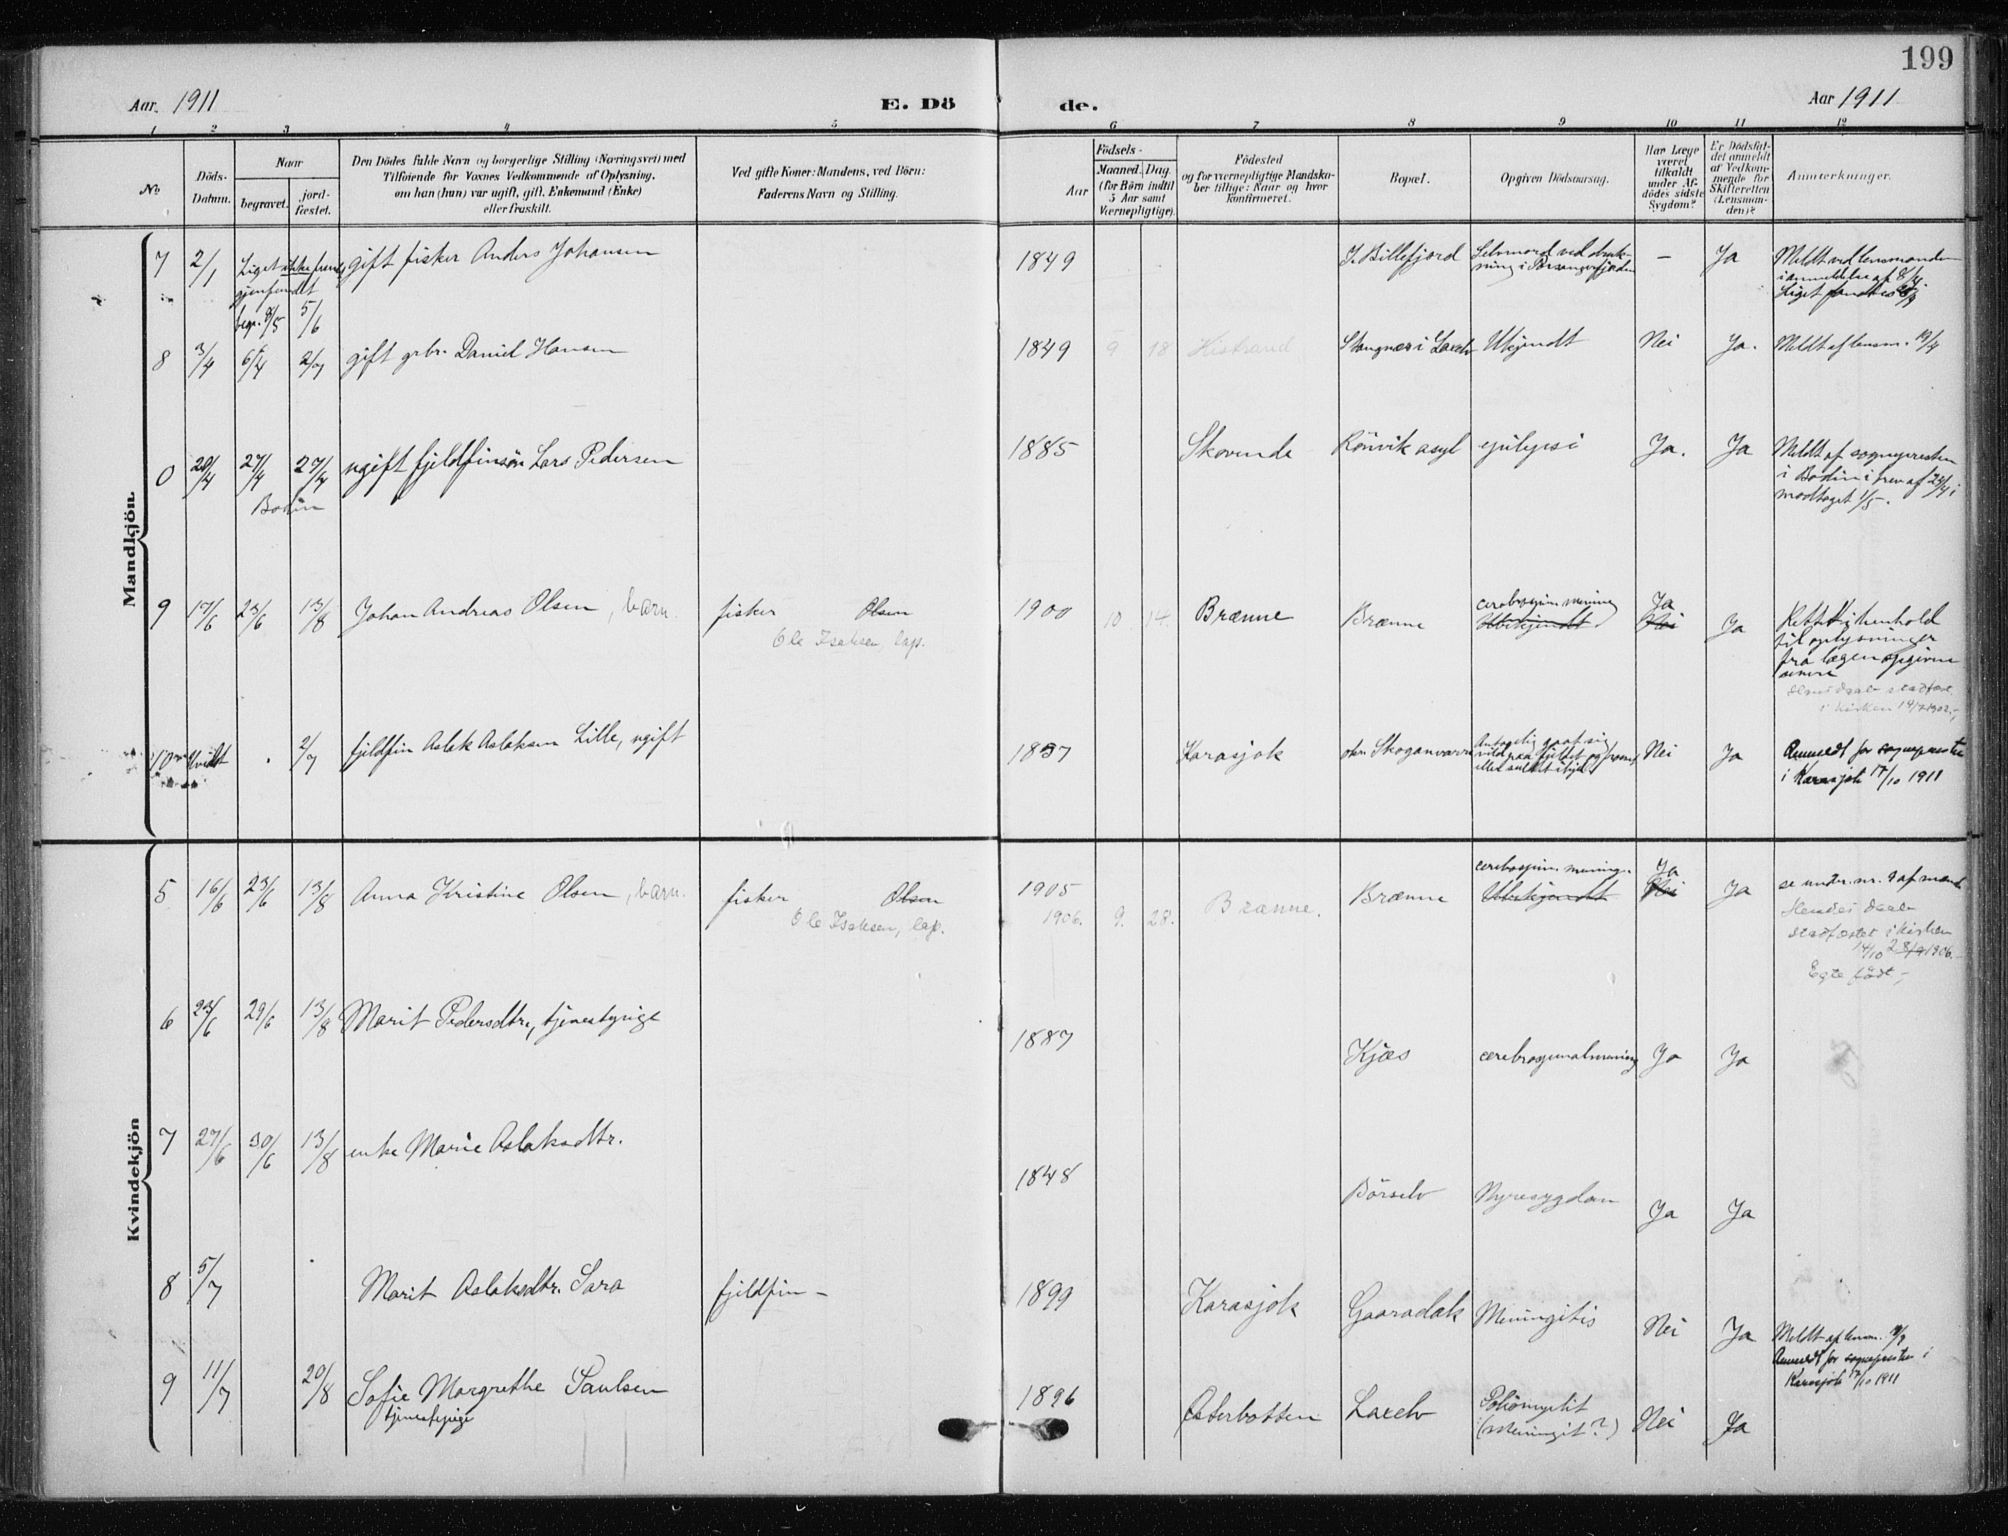 199
Aar 1911
E. Dö
de.
Aar 1911
1 2 3 4 5 6 7 8 9 10 11 12
No
Döds-
Datum.
Naar
begravet.
jord-
fæstet.
Den Dödes fulde Navn og borgerlige Stilling (Næringsvei) med
Tilföiende for Voxnes Vedkommende af Oplysning,
om han (hun) var ugift, gift, Enkemand (Enke)
eller fraskilt.
Ved gifte Koner: Mandens, ved Börn:
Faderens Navn og Stilling.
Aar
Födsels-
Maaned. Dag.
(for Börn indtil
5 Aar samt
Værnepligtige).
Födested
og for værnepligtige Mandska-
ber tillige: Naar og hvor
konfirmeret.
Bopæl.
Opgiven Dödsaarsag.
Har Læge
været
tilkaldt
under Af-
dödes sidste
Sygdom?
Er Dödsfal-
det anmeldt
af Vedkom-
mende for
Skifteretten
(Lensman-
den)?
Anmærkninger.
Mandkjön
7 2/1 Liget ikke
gjenfundet
begr. 8/5 5/6
gift fisker Anders Johansen
1849
I. Billefjord
Selvmord ved druk-
ning i Porsangerfjorden
—
Ja
Meldt ved lensmanden
i anmeldelse af 8/4.
Liget fandtes
8 3/4 6/4 2/7 gift grbr. Daniel Hansen
1849 9 18 Kistrand
Stangnes i Laxelv
Ukjendt
Nei
Ja.
Meldt af lensm. 19/4
0 20/4 27/4 27/4 ugift fjeldfinsön Lars Pedersen
Bodin
1885
Skovende
Rönvik asyl
epilepsi
Ja.
Ja
Meldt af sognepresten
i Bodin i brev af 28/4
modtaget 1/5.
9 17/6 23/6 13/8 Johan Andreas Olsen, barn.
fisker Olsen
Ole Isaksen, lap.
1900 10 14.
Brænne
Brænne
cerebrospin. mening
Ubekjendt
Ja
Nei
Ja
Rettet i henhold
til oplysninger
fra lægen opgivne
senere
daab stadfæst.
i kirken
10 2/7 fjeldfin Aslak Aslaksen Lille, ugift
1837
Karasjok
Skoganvarre
Antagelig gaat sig
vild paa fjeldet og frosset
eller sultet ihjel
Nei
Ja
Anmeldt for sognepresten
i Karasjok 17/10 1911
Kvindekjön
5 16/6 23/6 13/8 Anna Kristine Olsen, barn.
fisker Olsen
Ole Isaksen, lap.
1905
1906. 9. 28.
Brænne.
Brænne
cerebrospin. mening.
Ubekjendt
Ja
Nei
Ja
se under nr. 9 af mænd
Hendes daab
stadfæstet i kirken
14/10 28/9 1906.
Egte født,
6 23/6 29/6 13/8 Marit Pedersdtr, tjenestepige
1887
Kjæs
cerebrospinalmening
Ja
Ja
7 27/6 30/6 13/8 enke Marie Aslaksdtr.
1848
Börselv
Nyresygdom
Ja
Ja
8 5/7
Marit Aslaksdtr. Sara
fjeldfin —
1899
Karasjok
Gaaradak
Meningitis
Nei
Ja
Meldt af lensm.
Anmeldt for sognepresten i
Karasjok 17/10 1911
9 11/7 20/8 Sofie Margrethe Paulsen
tjenestepige
1896
Østerbotten
Laxelv
Poliomyelit
(Meningit?)
Nei
Ja